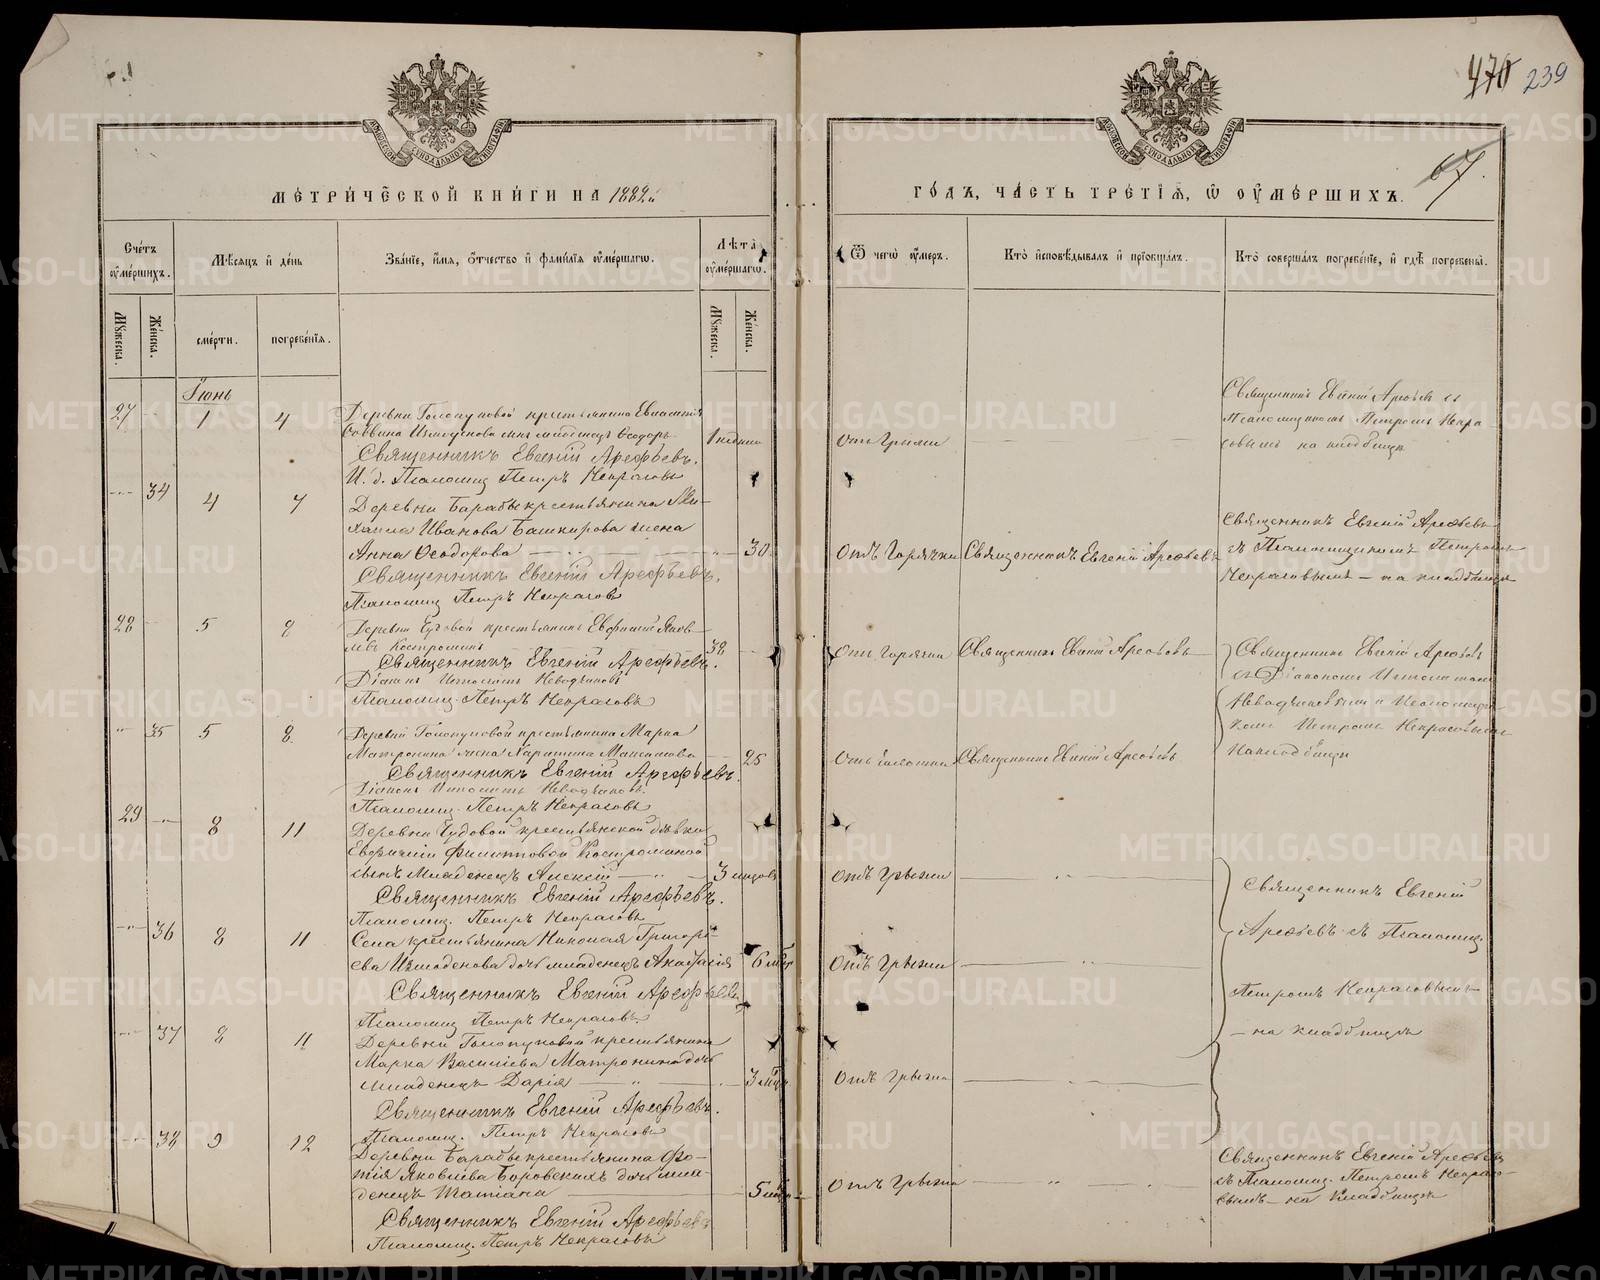 470 239
67.
МЕТРИЧЕСКОЙ КНИГИ НА 1882й
ГОДЪ, ЧАСТЬ ТРЕТІЯ, Ѿ ОУМЕРШИХЪ.
Счетъ оумершихъ.
Мѣсяцъ и день
Званіе, имя, отчество и фамилія оумершагω.
Лѣта оумершагω.
Ѿ чегω оумеръ.
Кто исповѣдывалъ и пріобщалъ.
Кто совершалъ погребеніе, и гдѣ погребены.
Мужеска.
Женска.
смерти.
погребенія.
Мужеска.
Женска.
Іюнь
27 1 4
Деревни Голопуповой крестьянина
Саввина сынъ младенецъ Ѳеодоръ
Священникъ Евгеній Арефьевъ.
И. д. Псаломщ. Петръ Некрасовъ
Священникъ Евгеній Арефьевъ съ
Псаломщикомъ Петромъ Некра
совымъ на кладбищѣ
34 4 7
Деревни Барабы крестьянина Ми-
хаила Иванова Башкирова жена
Анна Ѳеодорова 30
Отъ Горячки Священникъ Евгеній Арефьевъ
Священникъ Евгеній Арефьевъ
съ Псаломщикомъ Петромъ
Некрасовымъ – на кладбищѣ
Священникъ Евгеній Арефьевъ.
Псаломщ. Петръ Некрасовъ
28 5 8
Деревни крестьянинъ Евфимій Яков-
левъ Костроминъ 38
Отъ Горячки Священникъ Евгеній Арефьевъ
Священникъ Евгеній Арефьевъ.
Діаконъ Ипполитъ
Псаломщ. Петръ Некрасовъ
Священникъ Евгеній Арефьевъ
съ Діакономъ Ипполитомъ
и Псаломщи-
комъ Петромъ Некрасовымъ
На кладбищѣ
35 5 8
Деревни Голопуповой крестьянина Марка
Матронина жена Максимова 25
Священникъ Евгеній Арефьевъ
Священникъ Евгеній Арефьевъ.
Діаконъ Ипполитъ
Псаломщ. Петръ Некрасовъ
29 8 11
Деревни Чудовой крестьянской дѣвки
Евфиміи Филипповой Костроминой
сынъ младенецъ Алексій 3
Отъ Грыжи
Священникъ Евгеній Арефьевъ.
Псаломщ. Петръ Некрасовъ
Священникъ Евгеній
Арефьевъ съ Псаломщ.
Петромъ Некрасовымъ
– на кладбищѣ
36 8 11
Села крестьянина Николая Григорь-
ева Измоденова дочь младенецъ 6 мѣс
Отъ Грыжи
Священникъ Евгеній Арефьевъ
Псаломщ. Петръ Некрасовъ.
37 8 11
Деревни Голопуповой крестьянина
Марка Василіева Матронина дочь
младенецъ Дарія 3 мѣс.
Отъ Грыжи
Священникъ Евгеній Арефьевъ.
Псаломщ. Петръ Некрасовъ
38 9 12
Деревни Барабы крестьянина Фо-
тія Яковлева Боровскихъ дочь мла-
денецъ Татіана 5
Отъ Грыжи
Священникъ Евгеній Арефьевъ
съ Псаломщ. Петромъ Некрасо-
вымъ – на кладбищѣ
Священникъ Евгеній Арефьевъ
Псаломщ. Петръ Некрасовъ
METRIKI.GASO-URAL.RU